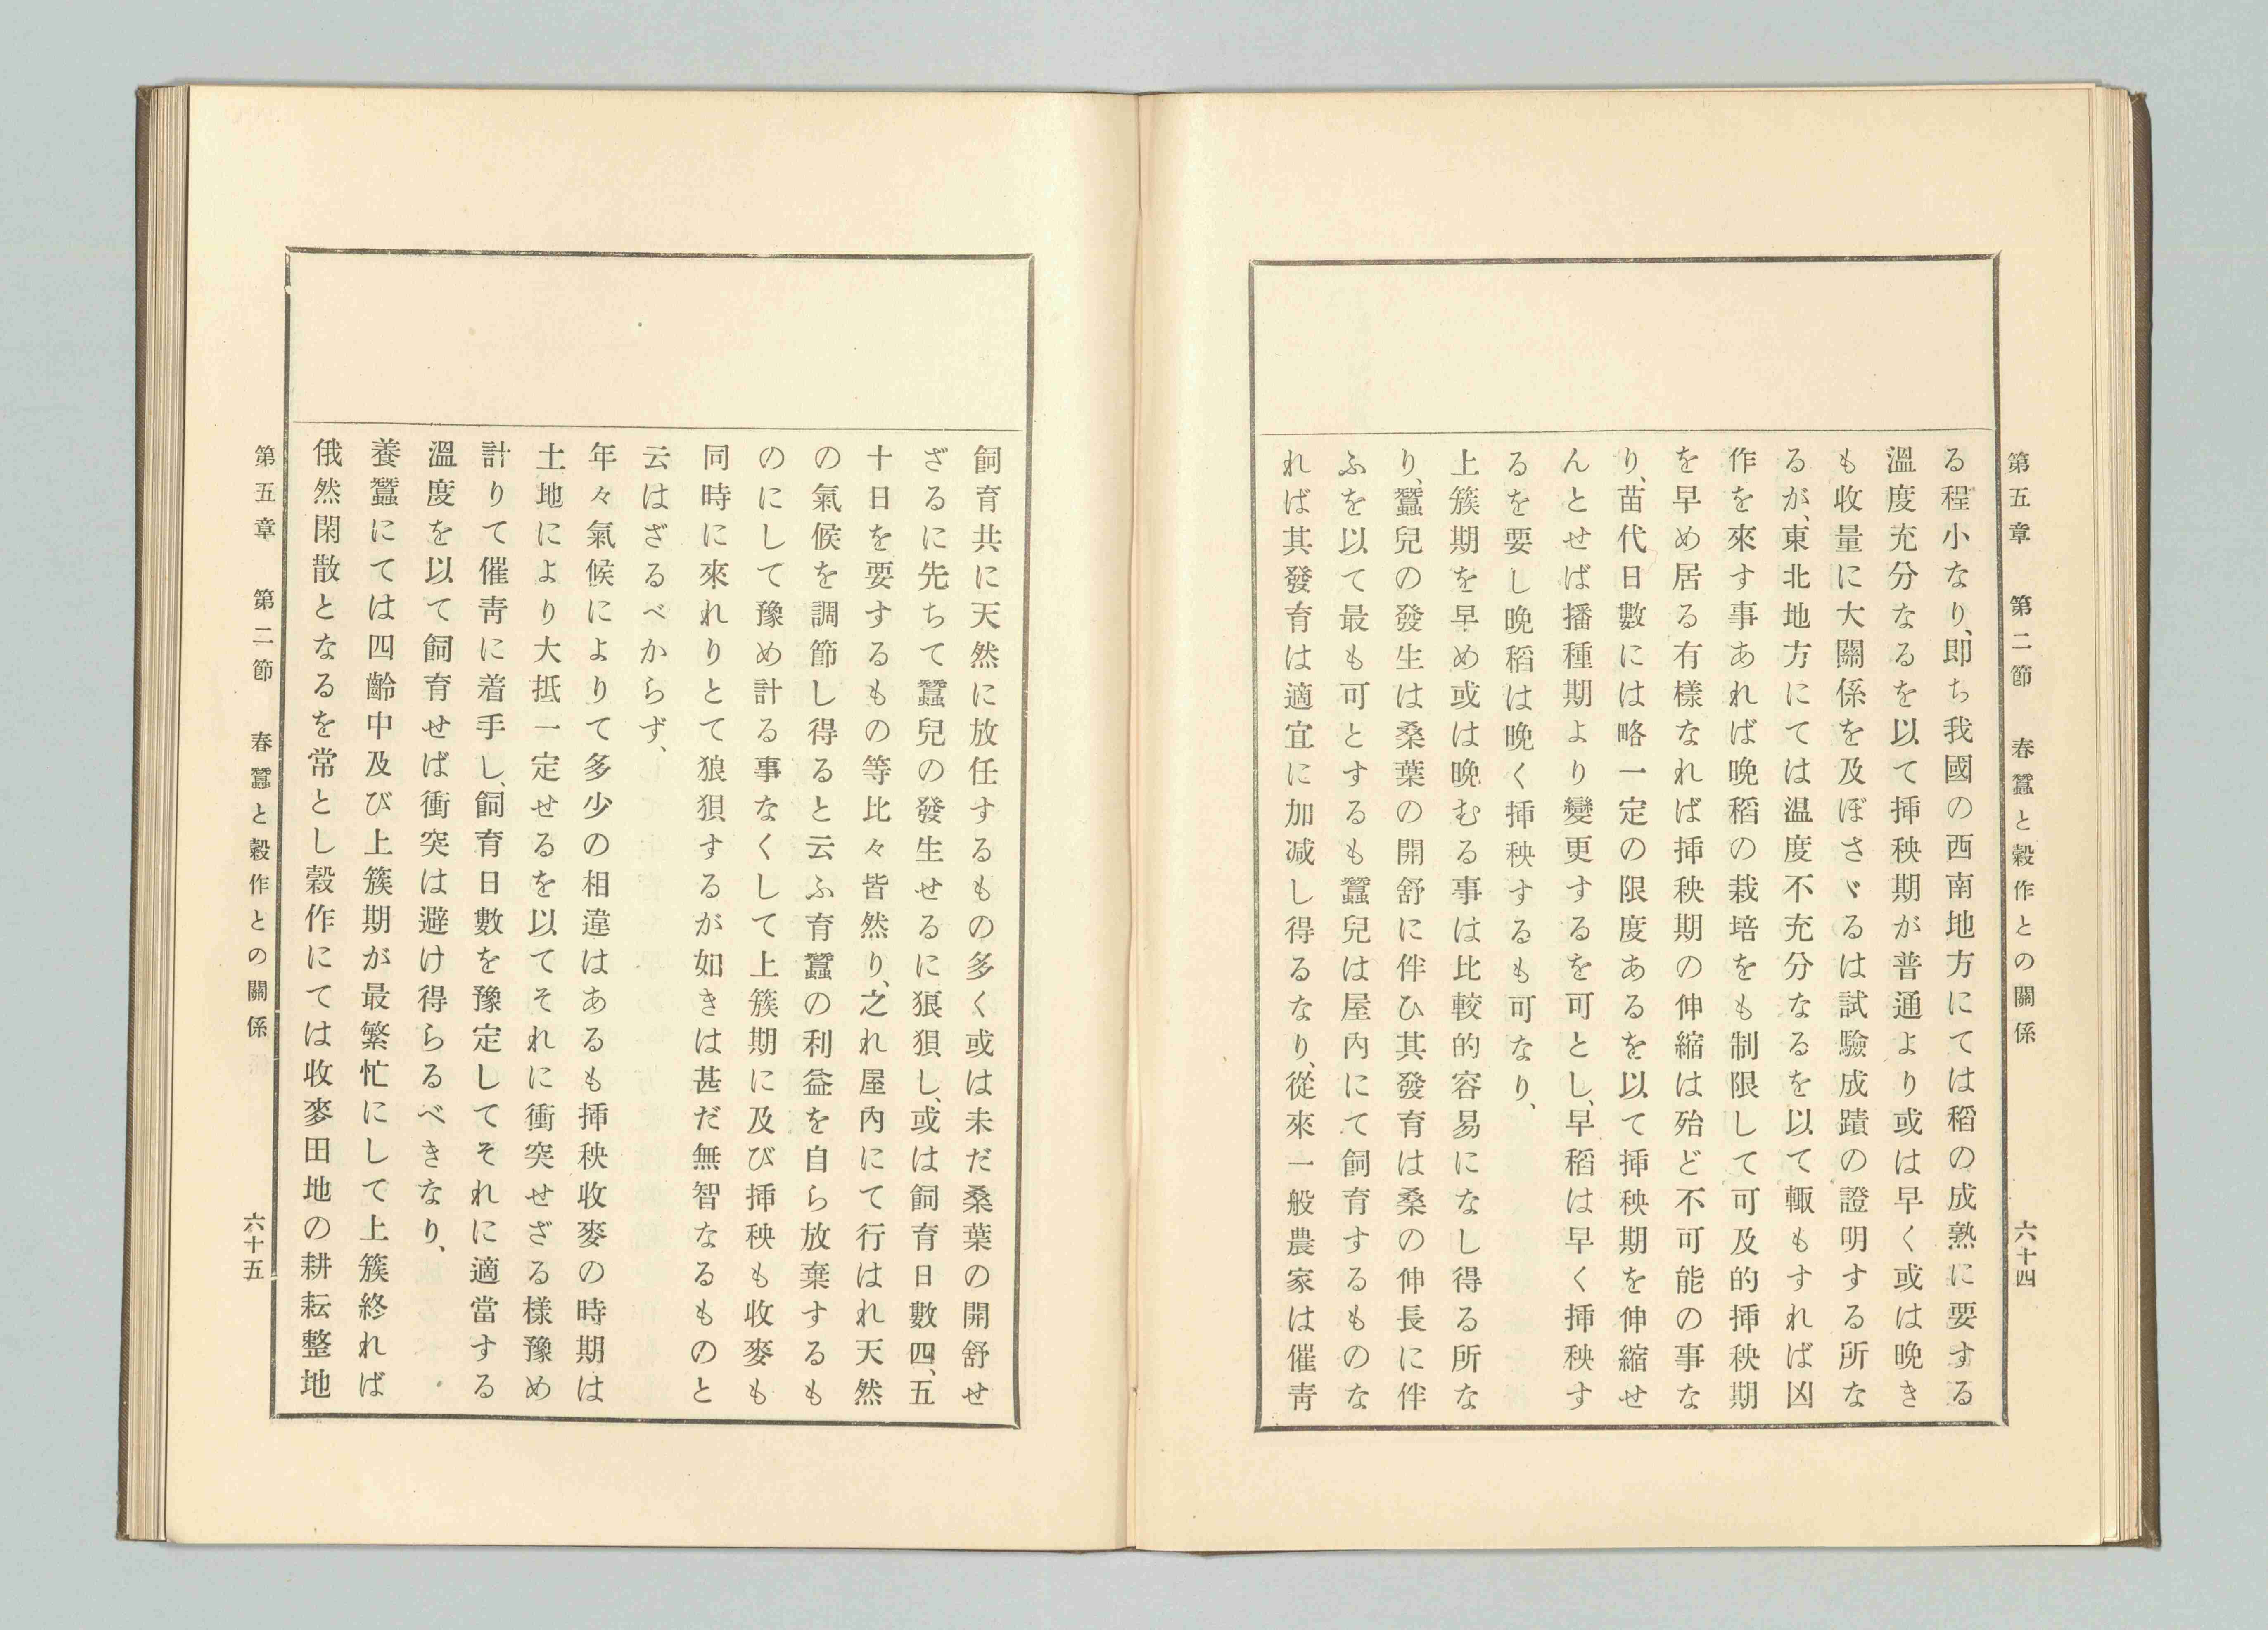 第五章　第二節　春蠶と穀作との關係　六十四
る程小なり、即ち我國の西南地方にては稻の成熟に要する
溫度充分なるを以て挿秧期が普通より或は早く或は晩き
も收量に大關係を及ぼさゞるは試驗成蹟の證明する所な
るが、東北地方にては温度不充分なるを以て輙もすれば凶
作を來す事あれば晩稻の栽培をも制限して可及的挿秧期
を早め居る有樣なれば挿秧期の伸縮は殆ど不可能の事な
り、苗代日數には略一定の限度あるを以て挿秧期を伸縮せ
んとせば播種期より變更するを可とし、早稻は早く挿秧す
るを要し晩稻は晩く挿秧するも可なり、
上簇期を早め或は晩むる事は比較的容易になし得る所な
り、蠶兒の發生は桑葉の開舒に伴ひ其發育は桑の伸長に伴
ふを以て最も可とするも蠶兒は屋內にて飼育するものな
れば其發育は適宜に加減し得るなり、從來一般農家は催靑
飼育共に天然に放任するもの多く或は未だ桑葉の開舒せ
ざるに先ちて蠶兒の發生せるに狼狽し、或は飼育日數四、五
十日を要するもの等比々皆然り、之れ屋內にて行はれ天然
の氣候を調節し得ると云ふ育蠶の利益を自ら放棄するも
のにして豫め計る事なくして上簇期に及び挿秧も收麥も
同時に來れりとて狼狽するが如きは甚だ無智なるものと
云はざるべからず、
年々氣候によりて多少の相違はあるも挿秧收麥の時期は
土地により大抵一定せるを以てそれに衝突せざる樣豫め
計りて催靑に着手し、飼育日數を豫定してそれに適當する
溫度を以て飼育せば衝突は避け得らるべきなり、
養蠶にては四齡中及び上簇期が最繁忙にして上簇終れば
俄然閑散となるを常とし穀作にては收麥田地の耕耘整地
第五章　第二節　春蠶と穀作との關係　六十五